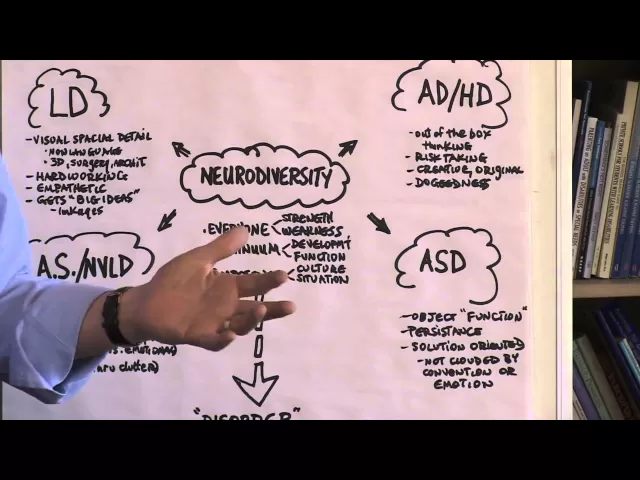 LD
- VISUAL SPACIAL DETAIL
• NON LANGUAGE
• 3D, SURGERY, ARCHIT
- HARDWORKING
- EMPATHETIC
- GETS "BIG IDEAS"
- linkages
AD/HD
- OUT OF THE BOX
THINKING
- RISK TAKING
- CREATIVE, ORIGINAL
- DOGGEDNESS
NEURODIVERSITY
• EVERYONE
STRENGTH
WEAKNESS,
DEVELOPMT
FUNCTION
CULTURE
SITUATION
A.S./NVLD
ASD
- OBJECT "FUNCTION"
- PERSISTANCE
- SOLUTION ORIENTED
- NOT CLOUDED BY
CONVENTION OR
EMOTION
"DISORDER"